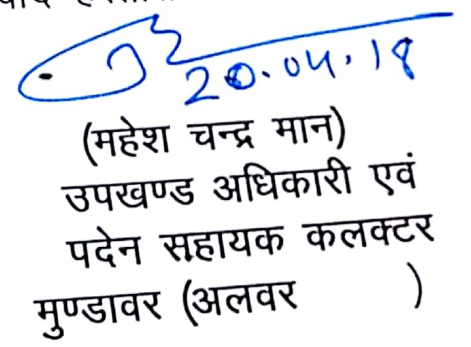 20.04.18
(महेश चन्द्र मान)
उपखण्ड अधिकारी एवं
पदेन सहायक कलक्टर
मुण्डावर (अलवर )